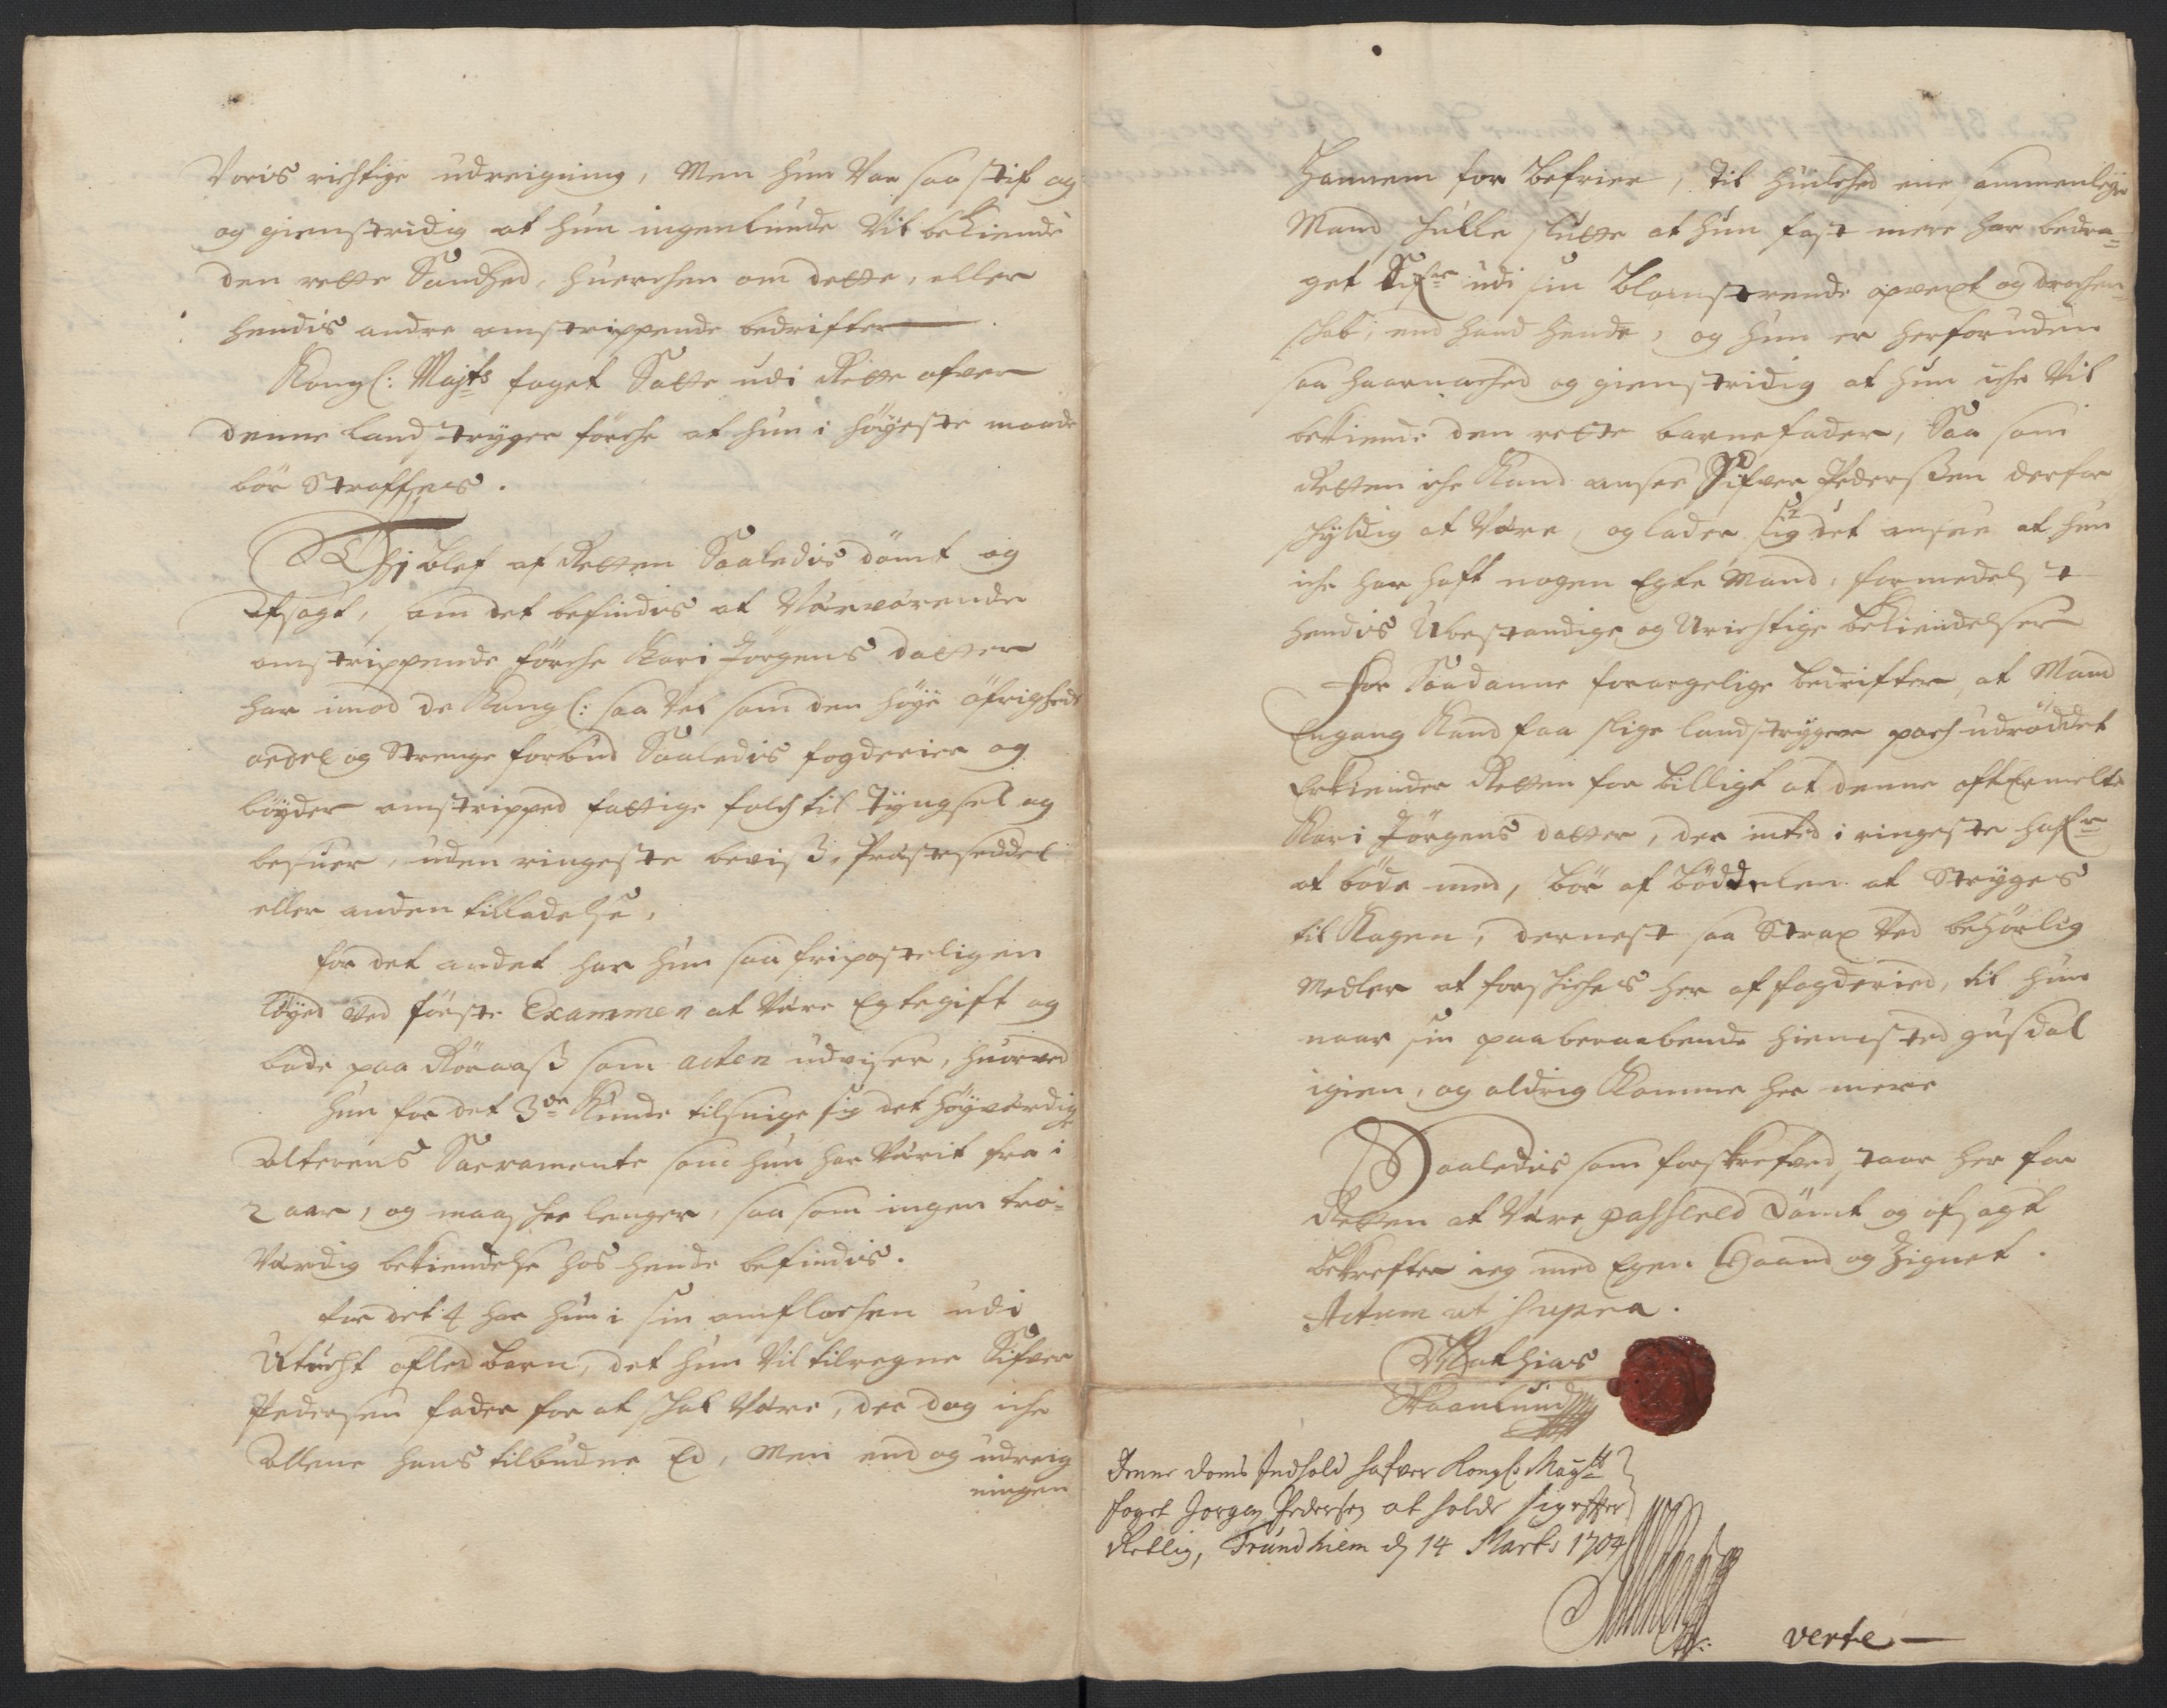 Voris richtige udreigning, Men hun Var saa stif og
og gienstridig at hun ingenlunde Vil bekiende
den rette Sandhed, huerchen om dette, eller
hendis andre omstrippende bedrifter
Kongl: Majts foget Satte udi Rette ofver
denne land stryger förche at hun i höyeste maade
bör Straffes.
Thi blef af Retten Saaledis dömt og
Afsagt, som det befindis at Nærværende
omstrippende förche Kari Jörgens datter
har imod de Kongl: saa Vel som den höye öfrigheds
ordel og Strenge forbud Saaledis fogderier og
böyder omstripped fattige folch til Tyngsel og
besuer, uden ringeste beviß, Præsteseddel
eller anden tilladelse,
for det andet har hun saa friposteligen
löyed Ved förste Examen at Være Egtegift og
bode paa Röraaß som acten udviser, huorved
hun for det 3de Kunde tilsnige sig det höyværdig
Alterens Sacramente som hun har Værit fra i
2 aar, og maa schee lenger, saa som ingen tro-
Værdig bekiendelse hos hende befindis.
for det 4 har hun i sin omflachen udi
Utucht afled barn, det hun Vil tilregne Sifver
Pedersen fader for at schal Være, der dog iche
Allene hans tilbudne Ed, Men end og udreig
ningen
Hannem for befrier, Til huilched een fornemmelig
Mand skulle slutte at hun fast mere har bedra-
get Sifr udi sin blomstrende opvext og drachen-
schab, end hand hende, og hun er herforuden
saa haarnached og gienstridig at hun iche Vil
bekiende den rette barnefader, Saa som
Retten iche Kand ansee Sifver Pederßen derfor
schyldig at Være, og lader sig det ansee at hun
iche har haft nogen Egte Mand, formedelst
hendis Ubestandige og Urichtige bekiendelser
For Saadanne forargelige bedrifter, at Mand
Engang Kand faa slige landstryger pach udröddet
Erkiender Retten for billigt at denne oftErmelte
Kari Jörgens datter, der inted i ringeste hafr
at böde med, bör af böddelen at Stryges
til Kagen, dernest saa Strax Ved behörlig
Medler at forschiches her af fogderied, til hun
naar sin paaberaabende hiemsted gusdal
igien, og aldrig Komme her mere
Saaledis som forskrefved staar her for
Retten at Være passered Dömt og afsagt
bekrefter ieg med Egen Haand og Zignet.
Actum ut supra.
Mathias
Skaanlund
Denne doms Indhold hafver Kongl: Mayts
foget Jörgen Pedersen at holde sig effter
Retlig, Trundhiem d 14 Marti 1704
verte